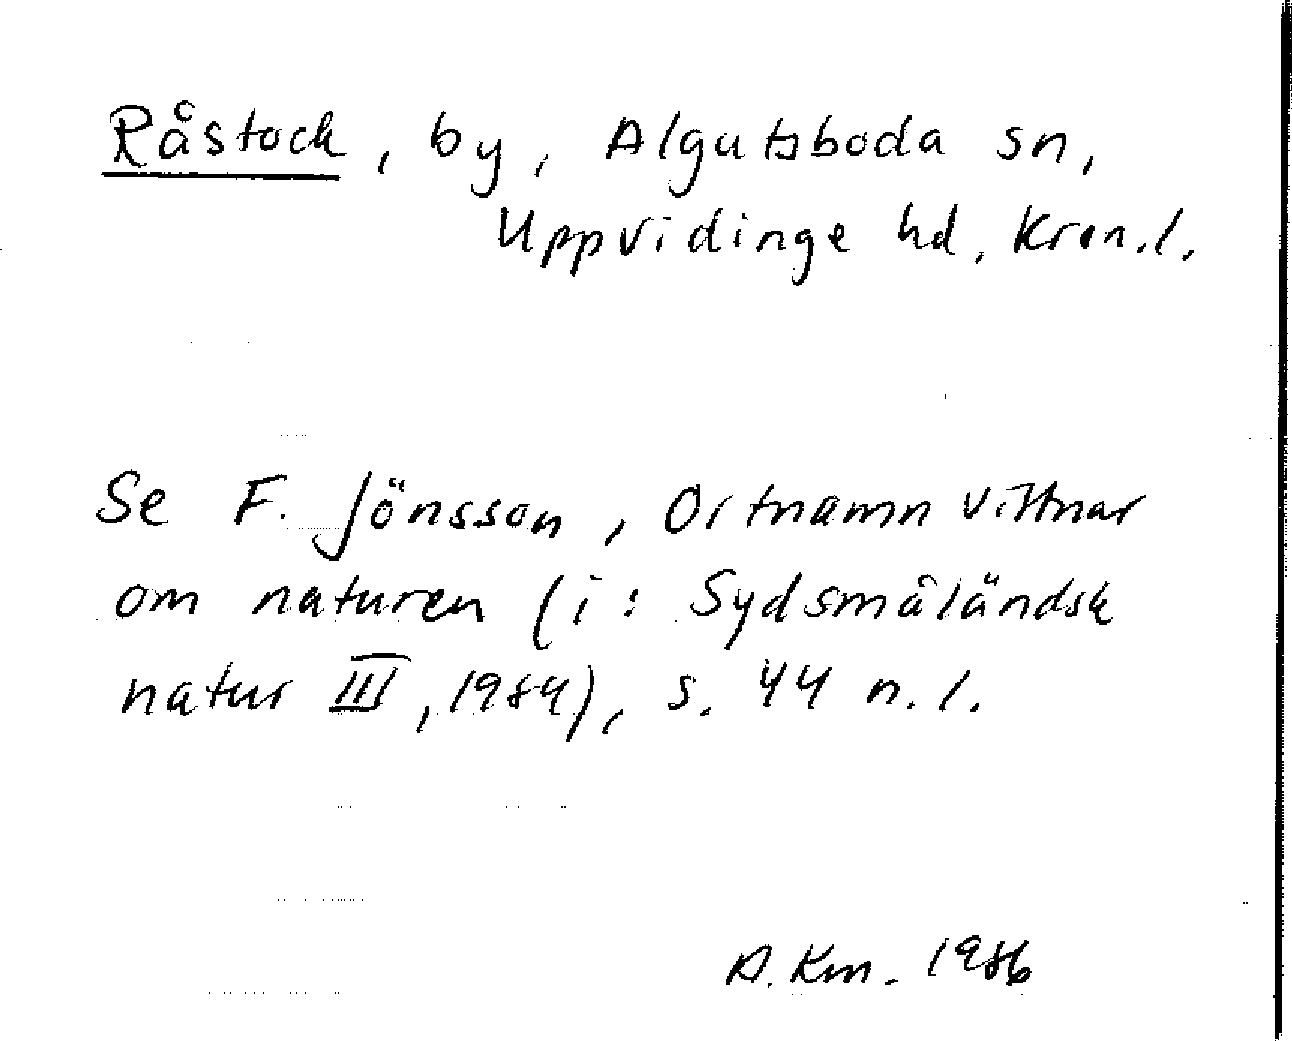 Råstock, by, Algutsboda sn,
Uppvidinge hd, Kron.l.
Se F. Jönsson, Ortnamn vittnar
om naturen (i: Sydsmåländsk
natur III, 1984), s. 44 n.l.
A. Km. 1986